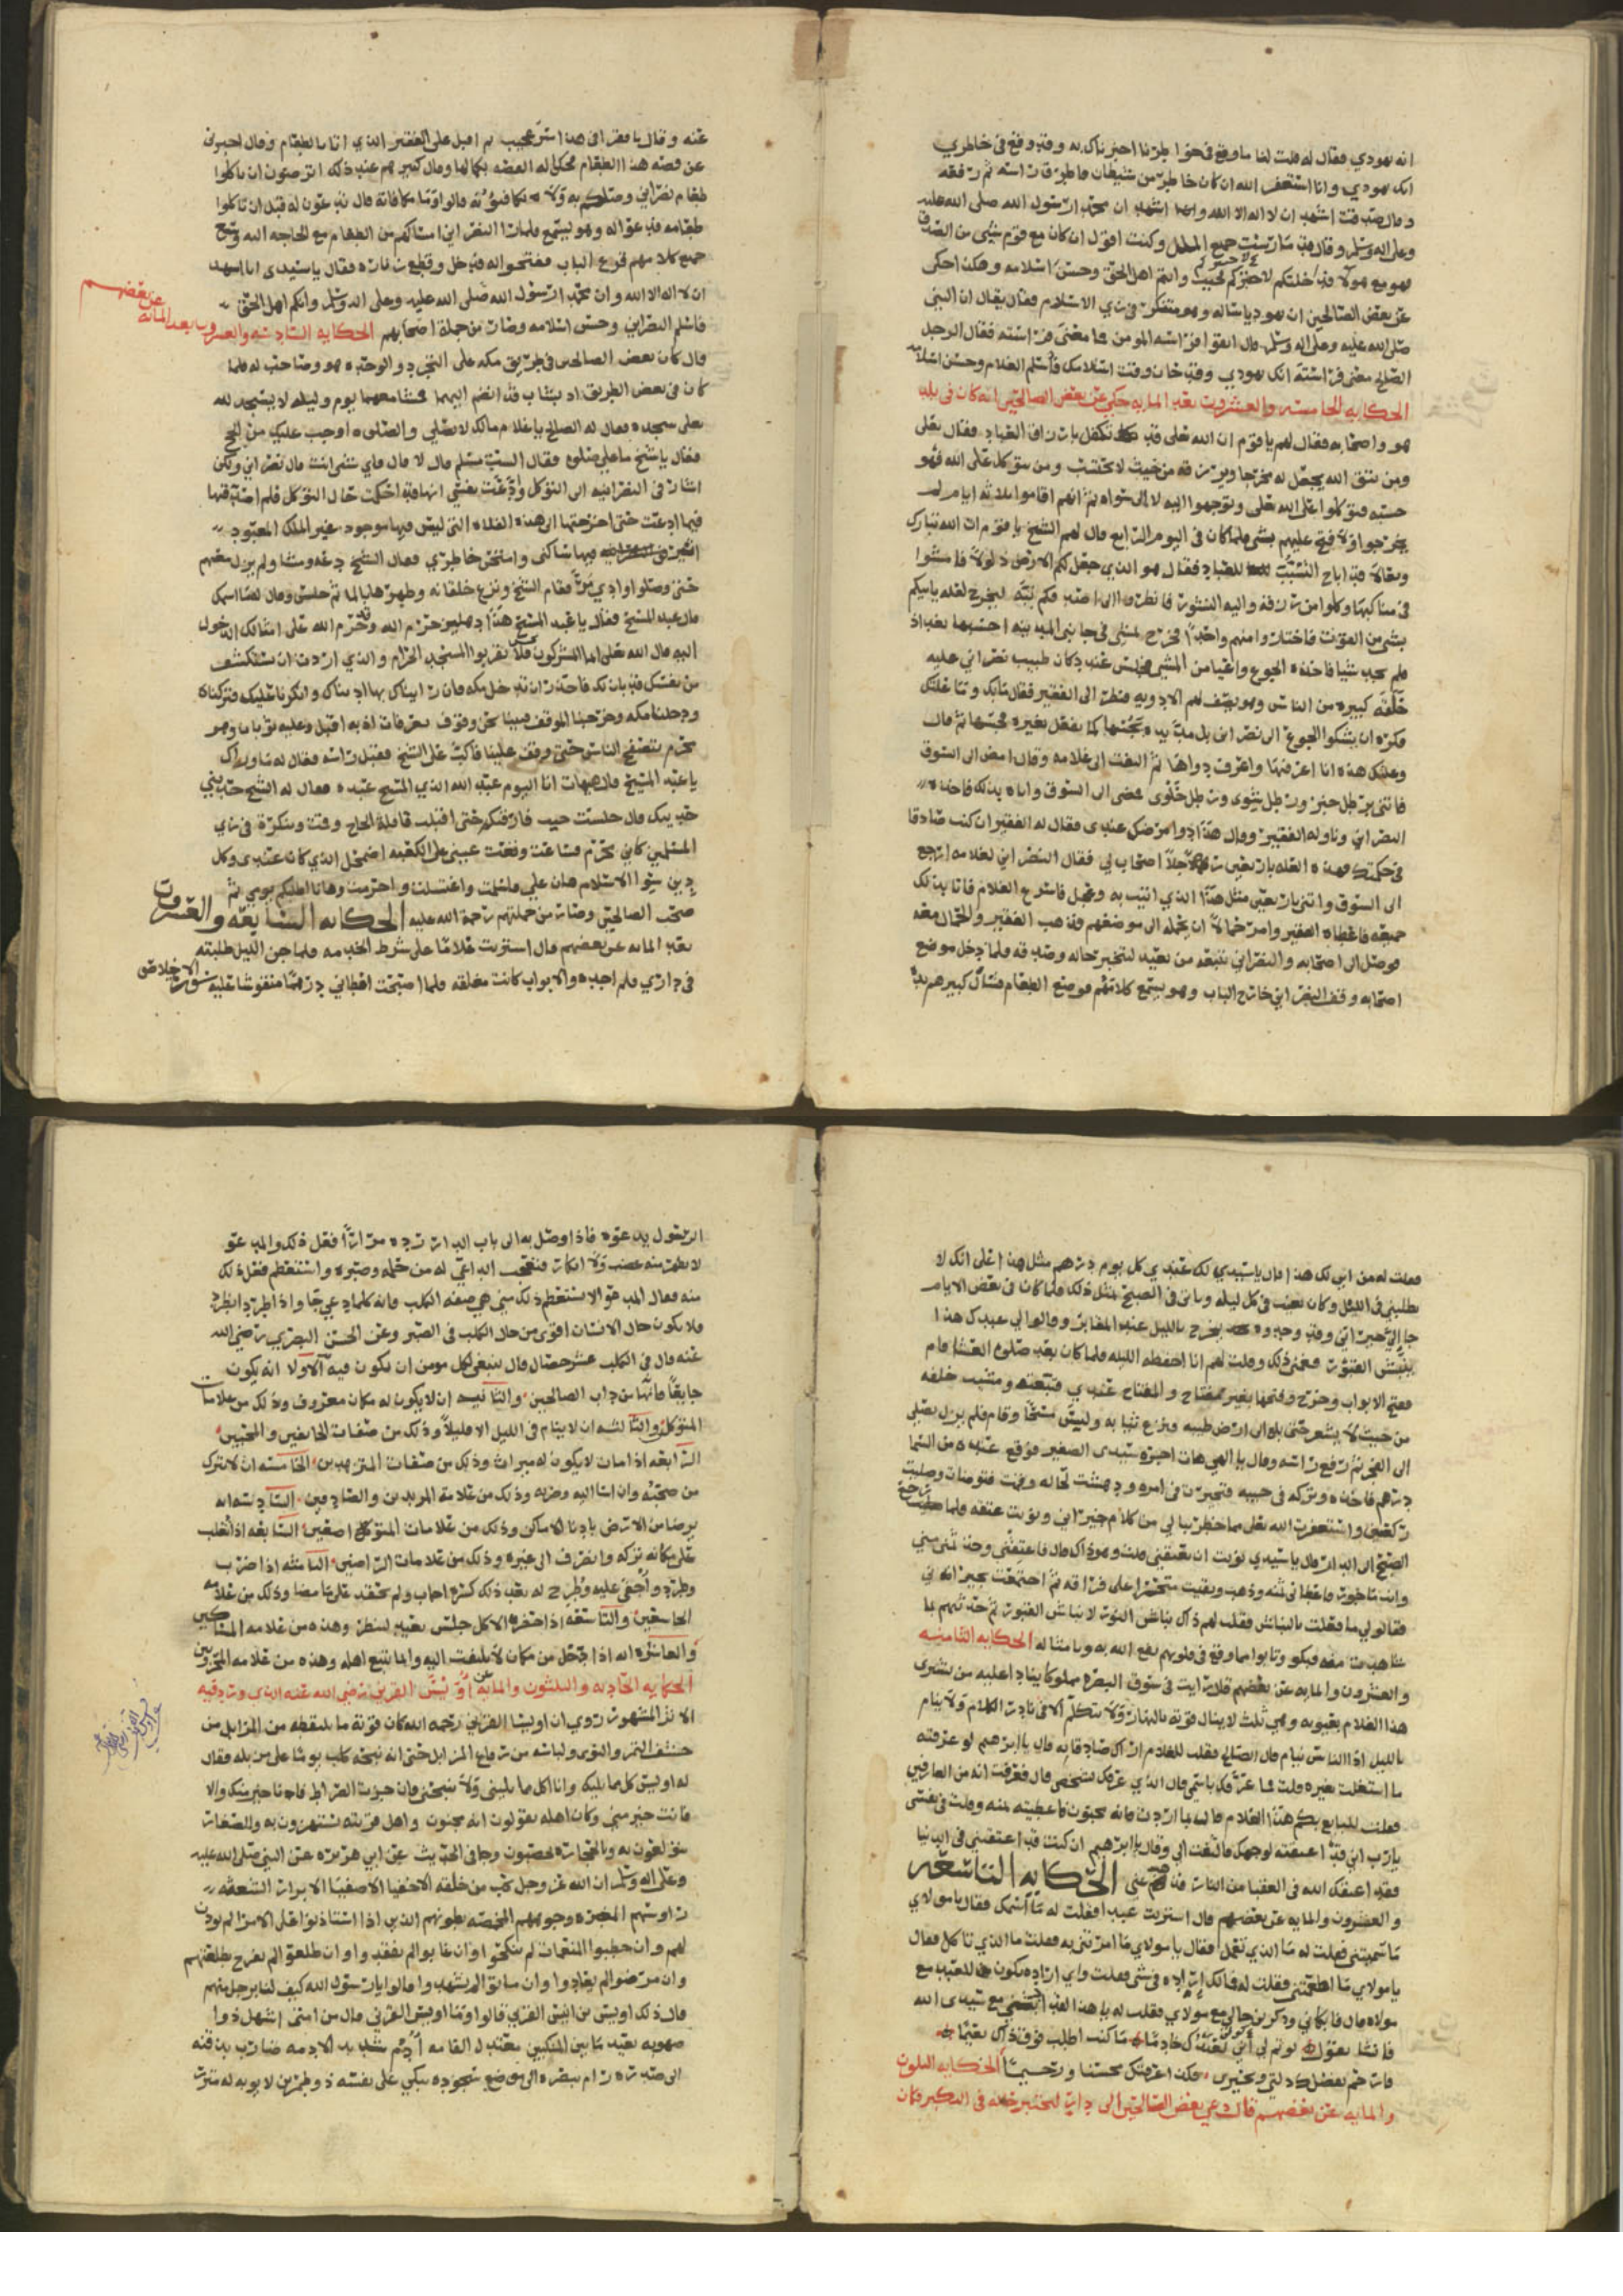 انه يهودي فقال له قلت لنا ما وقع في خواطرنا اخبرناك به وقد وقع في خاطري
انك يهودي وانا استغفر الله ان كان خاطر من شيطان فاطرق راسه ثم رفعه
وقال صدقت اشهد ان لا اله الا الله واشهد ان محمد ارسول الله صلى الله عليه
وعلى اله وسلم وقال قد مارست جميع الملل وكنت اقول ان كان مع قوم شيء من الصدق
فهو مع هولا فداخلتكم لاختبركم وانتم اهل الحق وحسن اسلامه وهكذا حكي
عن بعض الصالحين ان يهوديا ساله وهو متنكر في زي الاسلام فقال يقال ان النبي
صلى الله عليه وعلى اله وسلم قال اتقوا فراسة المومن فما معنى فراسته فقال الرجل
الصالح معنى فراسته انك يهودي وقد حان وقت اسلامك فاسلم الغلام وحسن اسلامه
الحكايه الخامسه والعشرون بعد المايه حكي عن بعض الصالحين انه كان في بلد
هو واصحابه فقال لهم يا قوم ان الله تعلى قد تكفل بارزاق العباد فقال تعلى
ومن يتق الله يجعل له مخرجا ويرزقه من حيث لا يحتسب ومن يتوكل على الله فهو
حسبه فتوكلوا على الله تعلى وتوجهوا اليه لا الى سواه ثم انهم اقاموا ثلاثه ايام لم
يخرجوا ولا فتح عليهم بشي فلما كان في اليوم الرابع قال لهم الشيخ يا قوم ان الله تبارك
وتعالى قد اباح التسبب للعباد فقال هو الذي جعل لكم الارض ذلولا فامشوا
في مناكبها وكلوا من رزقه واليه النشور فانظروا الى اصدقكم نيه ليخرج لعله ياتيكم
بشي من القوت فاختاروا منهم واحدا فخرج يمشي في جانبي المدينه احتسبها بغداد
فلم يجد شيا فاخذه الجوع واعيا من المشي فجلس عند دكان طبيب نصراني عليه
حلقه كبيره من الناس وهو يصف لهم الادويه فنظر الى الفقير فقال ما بك وما علتك
فكره ان يشكوا الجوع الى نصراني بل مد يده يجسها كما يفعل بغيره فجسها ثم قال
وعلتك هذه انا اعرفها واعرف دواها ثم التفت الى غلامه وقال امض الى السوق
فاتني برطل خبز ورطل شوى ورطل حلوى فمضى الى السوق واتاه بذلك فاخذه
النصراني وناوله الفقير وقال هذا دوا مرضك عندي فقال له الفقير ان كنت صادقا
في حكمتك فهذه العله باربعين رجلا اصحاب لي فقال النصراني لغلامه ارجع
الى السوق واتني باربعين مثل هذا الذي اتيت به وعجل فاسرع الغلام فاتا بذلك
جميعه فاعطاه الفقير وامر حمالا ان يحمله الى موضعهم فذهب الفقير والحمال معه
فوصل الى اصحابه والنصراني تتبعه من بعيد لتختبر حاله وصدقه فلما دخل موضع
اصحابه وقف النصراني خارج الباب وهو يستمع كلامهم فوضع الطعام فسال كبيرهم
عنه وقال يا فقرا في هذا سر عجيب ثم اقبل على الفقير الذي اتا بالطعام وقال اخبرني
عن قصه هذا الطعام فحكى له القصه بكمالها وقال كبيرهم عند ذلك اترضون ان تاكلوا
طعام نصراني وصلكم به ولا تكافئونه قالوا وما مكافاته قال تدعون له قبل ان تاكلوا
طعامه فدعوا له وهو يستمع فلما را النصراني امساكهم عن الطعام مع الحاجه اليه وسمع
جميع كلامهم قرع الباب ففتحوا له فدخل وقطع زناره فقال يا سيدي انا اشهد
ان لا اله الا الله وان محمد ارسول الله صلى الله عليه وعلى اله وسلم وانكم اهل الحق
فاسلم النصراني وحسن اسلامه وصار من جملة اصحابهم الحكايه السادسه والعشرون بعد المائه عن بعضهم
قال كان بعض الصالحين في طريق مكه على التجرد والوحده هو وصاحب له فلما
كان في بعض الطريق اذ بشاب قد انضم اليهما فمشا معهما يوم وليله لا يسجد لله
تعلى سجده فقال له الصالح يا غلام مالك لا تصلي والصلوه اوجب عليك من الحج
فقال يا شيخ ما علي صلوه فقال الست مسلم قال لا قال فاي شي انت قال نصراني ولكن
اشار في النصرانيه الى التوكل وادعت نفسي انها قد احكمت حال التوكل فلم اصدقها
فيما ادعت حتى اخرجتها الى هذه الفلاه التي ليس فيها موجود غير الملك المعبود
اثير فيها ساكني وامتحن خاطري فقال الشيخ دعه ومشا ولم يزل معهم
حتى وصلوا وادي مر فقام الشيخ ونزع خلقانه وطهرها بالما ثم جلس وقال له ما اسمك
قال عبد المسيح فقال يا عبد المسيح هذا دهليز حرم الله وقد حرم الله على امثالك الدخول
اليه قال الله تعلى انما المشركون نجس فلا يقربوا المسجد الحرام والذي اردت ان تستكشف
من نفسك قد بان لك فاحذر ان تدخل مكه فان رايناك بها ادبناك وانكرنا عليك فتركناه
ودخلنا مكه وخرجنا الموقف فبينا نحن وقوف بعرفات اذ به اقبل وعليه ثوبان وهو
محرم يتصفح الناس حتى وقف علينا فاكب على الشيخ فقبل راسه فقال له ما وراك
يا عبد المسيح قال هيهات انا اليوم عبد الله الذي المسيح عبده فقال له الشيخ حدثني
حديثك قال جلست حيث فارقتكم حتى اقبلت قافلة الحاج وقمت وتنكرة في زي
المسلمين كاني محرم فساعة وقعت عيني على الكعبه اضمحل الذي كان عندي وكل
دين سوا الاسلام هان علي فاسلمت واغتسلت واحرمت وها انا اطلبكم يومي ثم
صحب الصالحين وصار من جملتهم رحمة الله عليه الحكايه السابعه والعشرون
بعد المايه عن بعضهم قال اشتريت غلاما على شرط الخدمه فلما جن الليل طلبته
في داري فلم اجده والابواب كانت مغلقه فلما اصبحت اعطاني درهما منقوشا عليه سورة الاخلاص
فقلت له من اين لك هذا قال يا سيدي لك عندي كل يوم درهم مثل هذا على انك لا
تطلبني في الليل وكان يغيب في كل ليله وياتي في الصبح بمثل ذلك فلما كان في بعض الايام
جا الي جيراني وقد وجدوه يخرج بالليل عند المقابر وقالوا لي عبدك هذا
ينبش القبور فغمني ذلك وقلت لهم انا احفظه الليله فلما كان بعد صلوه العشا قام
ففتح الابواب وخرج وفتحها بغير مفتاح والمفتاح عندي فتبعته ومشيت خلفه
من حيث لا يشعر حتى بلغ الى ارض طيبه ونزع ثيابه ولبس مسحا وقام فلم يزل يصلي
الى الفجر ثم رفع راسه وقال يا الهي هات اجرة سيدي الصغير فوقع عنده من السما
درهم فاخذه وتركه في جيبه فتحيرت في امره ودهشت لحاله وقمت فتوضات وصليت
ركعتين واستغفرت الله تعلى مما خطر ببالي من كلام جيراني ونويت عتقه فلما رجع
الصبح الى الدار قال يا سيدي نويت ان تعتقني قلت وهو ذاك قال فاعتقني وخذ ثمني مني
فقالو لي ما فعلت بالنباش فقلت لهم ذاك نباش النور لا نباش القبور ثم حدثتهم بما
شاهدت منه فبكو وتابوا مما وقع في قلوبهم نفع الله به وبامثاله الحكايه الثامنه
والعشرون والمايه عن بعضهم قال رايت في سوق البصره مملوكا ينادا عليه من يشتري
هذا الغلام بعيوبه وهي ثلث لا ينال قوته بالنهار ولا يتكلم الا في نادر الكلام ولا ينام
بالليل اذا الناس نيام قال الصالح فقلت للغلام اراك صادقا به قال يا ابرهيم لو عرفته
ما اشتغلت بغيره قلت فما عرفك باسمي قال الذي عرفك شخصي قال فعرفت انه من العارفين
فقلت للبايع بكم هذا الغلام قال بما اردت فانه مجنون فاعطيته ثمنه وقلت في نفسي
يا رب اني قد اعتقته لوجهك فالتفت الي وقال يا ابرهيم ان كنت قد اعتقتني في الدنيا
فقد اعتقك الله في العقبا من النار الحكايه التاسعه
والعشرون والمايه عن بعضهم قال اشتريت عبدا فقلت له ما اسمك فقال يا مولاي
ما سميتني فقلت له ما الذي تعمل فقال يا مولاي ما امرتني به فقلت ما الذي تاكل فقال
يا مولاي ما اطعمتني فقلت له فمالك اراده في شي فقلت واي اراده تكون للعبد مع
مولاه قال فابكاني وذكرني حالي مع مولاي فقلت له يا هذا لقد مع سيدي الله
فانشا يقول لو تم لي كوني لك خادما ما كنت اطلب فوق ذاك نعيما
فارحم بفضلك ذلتي وتحيري فلكن اعرفتك محسنا ورحيما الحكايه الثلثون
والمايه عن بعضهم قال دعي بعض الصالحين الى دار لتختبر خلقه في التكبر فكان
الرسول يدعوه فاذا وصل به الى باب الدار رده مرارا فعل ذلك والمدعو
لا يظهر منه غضب ولا انكار فتعجب الداعي له من حلمه وصبره واستعظم فعل ذلك
منه فقال المدعو الا تستعظم ذلك مني هي صفه الكلب فانه كلما دعي جا واذا طرد انطرد
فلا يكون حال الانسان اقوى من حال الكلب في الصبر وعن الحسن البصري رضي الله
عنه قال في الكلب عشر خصال قال ينبغي لكل مومن ان يكون فيه الاولا انه يكون
جايعا فانها من داب الصالحين والثانيه ان لا يكون له مكان معروف وذلك من علامات
المتوكلين والثالثه ان لا ينام في الليل الا قليلا وذلك من صفات الخايفين والمحبين
الرابعه اذا مات لا يكون له ميراث وذلك من صفات المتزهدين الخامسه ان لا يترك
من صحبه وان اسا اليه وضربه وذلك من علامة المريدين والصادقين السادسه انه
يرضا من الارض بادنا الاماكن وذلك من علامات المتواضعين السابعه اذا تغلب
على مكانه تركه وانصرف الى غيره وذلك من علامات الراضين الثامنه اذا ضرب
وطرد واجفي عليه وطرح له بعد ذلك كسره اجاب ولم يحقد على ما مضا وذلك من علامة
الخاشعين والتاسعه اذا حضره الاكل جلس بعيد ينظر وهذه من علامه المساكين
والعاشره انه اذا رحل من مكان لا يلتفت اليه وانما يتبع اهله وهذه من علامه المجردين
الحكايه الحاديه والثلثون والمايه عن اويس القرني رضي الله عنه الذي ورد فيه
الاثر المشهور روي ان اويسا القرني رحمه الله كان قوته ما يلتقطه من المزابل من
حشف التمر والنوى ولباسه من رقاع المزابل حتى انه نبحه كلب يوما على مزبله فقال
له اويس كل مما يليك وانا اكل مما يليني ولا تنبحني فان جزت الصراط فانا خير منك والا
فانت خير مني وكان اهله يقولون انه مجنون واهل قريته يستهزون به والصغار
يولعون به وبالحجاره يحصبون وجا في الحديث عن ابي هريره عن النبي صلى الله عليه
وعلى اله وسلم ان الله عز وجل يحب من خلقه الاخفيا الاصفيا الابرار الشعثه
روسهم المغبره وجوههم المخمصه بطونهم الذين اذا استاذنوا على الامرا لم يوذن
لهم وان خطبوا المنعمات لم ينكحو وان غابوا لم يفقدوا وان طلعوا لم يفرح بطلعتهم
وان مرضوا لم يعادوا وان ماتوا لم يشهدوا قالوا يا رسول الله كيف لنا برجل منهم
قال ذلك اويس بن انيس القرني قالوا وما اويس القرني قال من امتي اشهل ذوا
صهوبه بعيد ما بين المنكبين معتدل القامه ادم شديد الادمه ضارب بذقنه
الى صدره رام ببصره الى موضع سجوده يبكي على نفسه ذو طمرين لا يوبه له متزر